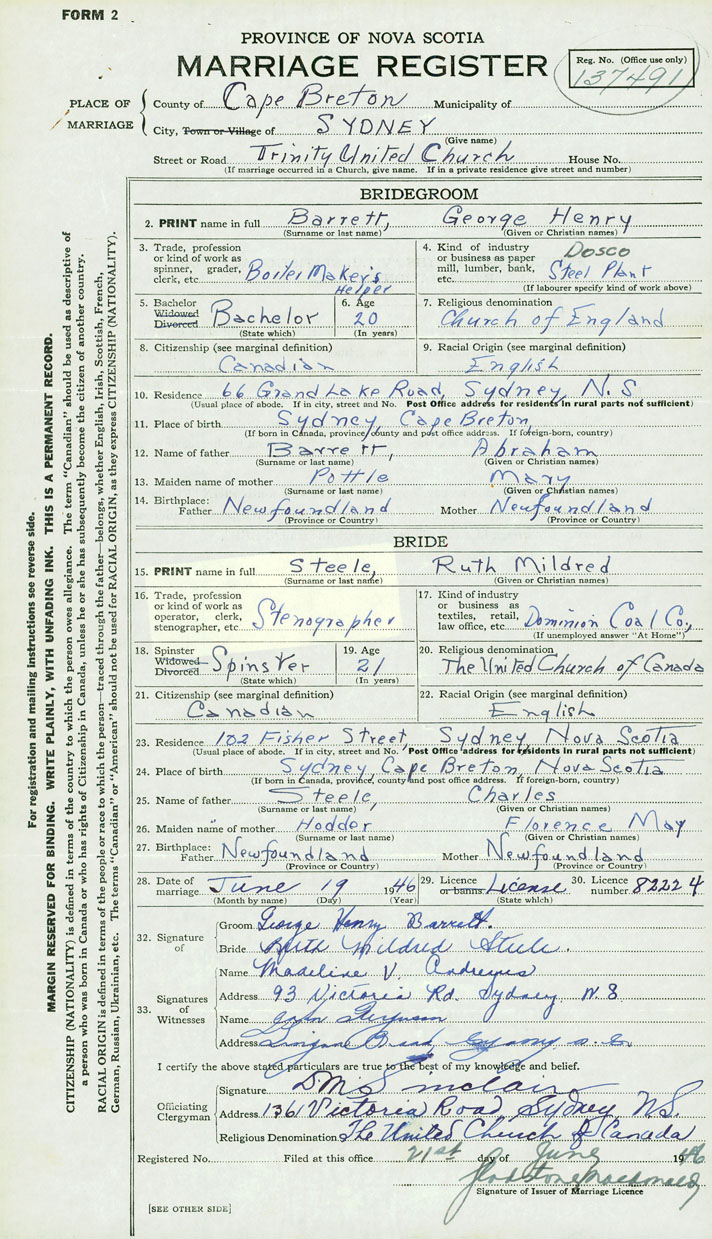 FORM 2
PROVINCE OF NOVA SCOTIA
MARRIAGE REGISTER
Reg. No. (Office use only)
137491
PLACE OF MARRIAGE
County of Cape Breton Municipality of
City, Town or Village of SYDNEY
(Give name)
Street or Road Trinity United Church House No.
(If marriage occurred in a Church, give name. If in a private residence give street and number)
BRIDEGROOM
2. PRINT name in full Barrett, George Henry
(Surname or last name) (Given or Christian names)
3. Trade, profession or kind of work as spinner, grader, clerk, etc. Boiler Maker's Helper
4. Kind of industry or business as paper mill, lumber, bank, etc. Dosco Steel Plant
(If labourer specify kind of work above)
5. Bachelor Widowed Divorced Bachelor
(State which)
6. Age 20
(In years)
7. Religious denomination
Church of England
8. Citizenship (see marginal definition)
Canadian
9. Racial Origin (see marginal definition)
English
10. Residence 66 Grand Lake Road, Sydney, N.S
(Usual place of abode. If in city, street and No. Post Office address for residents in rural parts not sufficient)
11. Place of birth Sydney, Cape Breton,
(If born in Canada, province county and post office address. If foreign-born, country)
12. Name of father Barrett, Abraham
(Surname or last name) (Given or Christian names)
13. Maiden name of mother Pottle Mary
(Surname or last name) (Given or Christian names)
14. Birthplace: Father Newfoundland Mother Newfoundland
(Province or Country) (Province or Country)
BRIDE
15. PRINT name in full Steele, Ruth Mildred
(Surname or last name) (Given or Christian names)
16. Trade, profession or kind of work as operator, clerk, stenographer, etc Stenographer
17. Kind of industry or business as textiles, retail, law office, etc. Dominion Coal Co,
(If unemployed answer "At Home")
18. Spinster Widowed Divorced Spinster
(State which)
19. Age 21
(In years)
20. Religious denomination
The United Church of Canada
21. Citizenship (see marginal definition)
Canadian
22. Racial Origin (see marginal definition)
English
23. Residence 102 Fisher Street, Sydney, Nova Scotia
(Usual place of abode. If in city, street and No. Post Office address for residents in rural parts not sufficient)
24. Place of birth Sydney Cape Breton, Nova Scotia
(If born in Canada, province, county and post office address. If foreign-born, country)
25. Name of father Steele, Charles
(Surname or last name) (Given or Christian names)
26. Maiden name of mother Hodder Florence May
(Surname or last name) (Given or Christian names)
27. Birthplace: Father Newfoundland Mother Newfoundland
(Province or Country) (Province or Country)
28. Date of marriage June 19 1946
(Month by name) (Day) (Year)
29. Licence or banns License
(State which)
30. Licence number 82224
32. Signature of
Groom George Henry Barrett.
Bride Ruth Mildred Steele.
33. Signatures of Witnesses
Name Madeline V. Andrews
Address 93 Victoria Rd. Sydney N.S
Name Ferguson
Address
I certify the above stated particulars are true to the best of my knowledge and belief.
Officiating Clergyman
Signature D M Sinclair
Address 136 Victoria Road, Sydney, N.S.
Religious Denomination The United Church of Canada
Registered No. Filed at this office 21st day of June 1946
Gladstone Macdonald
Signature of Issuer of Marriage Licence
[SEE OTHER SIDE]
For registration and mailing instructions see reverse side.
MARGIN RESERVED FOR BINDING. WRITE PLAINLY, WITH UNFADING INK. THIS IS A PERMANENT RECORD.
CITIZENSHIP (NATIONALITY) is defined in terms of the country to which the person owes allegiance. The term "Canadian" should be used as descriptive of
a person who was born in Canada or who has rights of Citizenship in Canada, unless he or she has subsequently become the citizen of another country.
RACIAL ORIGIN is defined in terms of the people or race to which the person—traced through the father—belongs, whether English, Irish, Scottish, French,
German, Russian, Ukrainian, etc. The terms "Canadian" or "American" should not be used for RACIAL ORIGIN, as they express CITIZENSHIP (NATIONALITY).